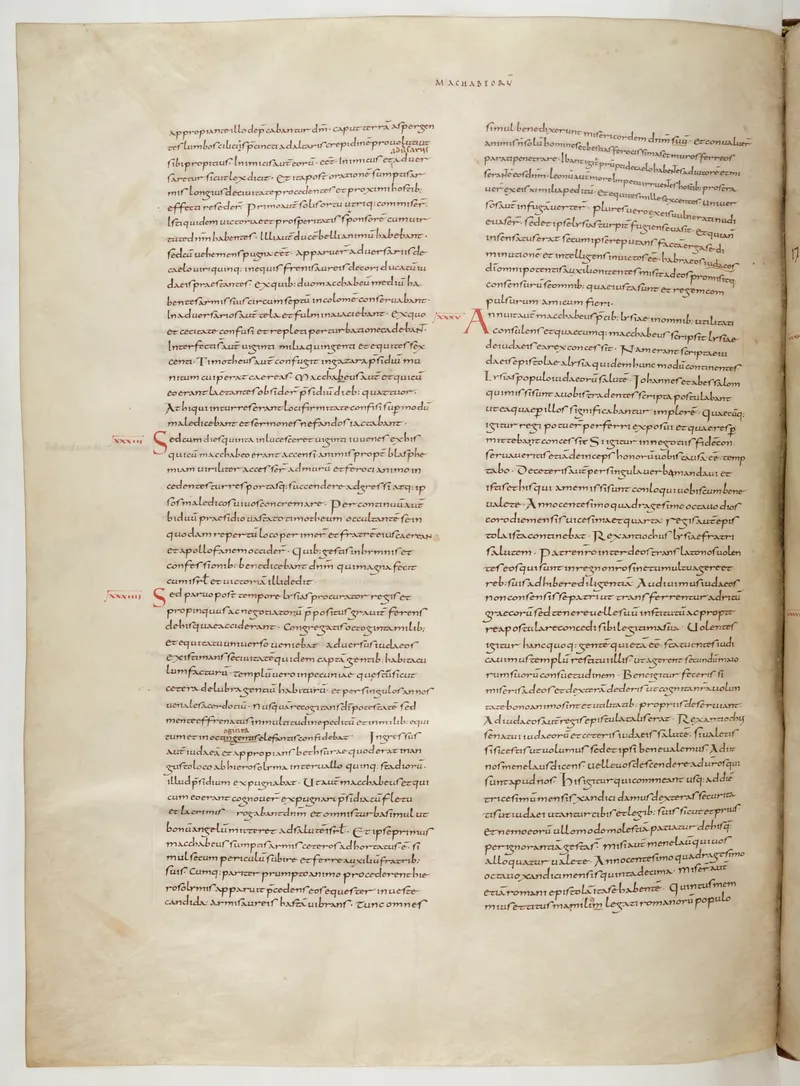 MACHABEORŪ
appropiante illo depcabantur dm̄. caput terra aspergen
tes lumbosq; cilicijs p̄cincti ad altaris crepidinē prouoluti ut
sibi propitius. Inimicis aut̄ eorū. eēt. Inimicus et aduer
saretur sicut lex dicit. Et ita post orationē sumptis ar
mis longius de ciuitate procedentes et proximi hostib;
effecti resederr̄. Primo aut̄ solis ortu utriq; commiserr̄.
Isti quidem uictoriae et prosperitatis sponsorē cum uir
tute dn̄m habentes. Illi aut̄ ducē belli animū habebant.
sed cū uehemens pugna eēt. apparuer̄ aduersariis de
caelo uiri quinq; in equis frenis aureis decori ducatū iu
daeis praestantes. ex quib; duo macchabeū mediū ha
bentes armis suis circumseptū incolomē conseruabant.
In aduersarios aut̄ tela et fulmina iaciebant. ex quo
et cecitate confusi et repleti perturbatione cadebant.
Interfecti s̄ aut̄ uiginti milia quingenti et equites sex
centi. Timotheus aut̄ confugit in gazara p̄sidiū mu
nitum cui p̄erat caereas. Macchabeus aut̄ et qui cū
eo erant laetantes obsiderr̄ p̄sidiū dieb; quattuor.
At hi qui intus erant loci firmitate confisi sup̄ modū
maledicebant et sermones nefandos iactabant.
XXXIII Sed cum dies quinta inlucesceret uiginti iuuenes ex his
qui cū macchabeo erant accensi animis propt̄ blasphe
miam uiriliter accesserr̄ ad murū et feroci animo in
cedentes turres portasq; succendere adgressi atq; ip
sos maledicos uiuos concremare. Per continuū aut̄
biduū praesidio uastato timotheum occultantē se in
quodam repertū loco peremer̄ et fratrē eius caerean
et apollofanem occiderr̄. Quib; gestis in hymnis et
confessionib; benedicebant dn̄m qui magna fecit
cum isrł et uictoriā illi dedit.
XXXIIII Sed paruo post tempore lysias procurator regis et
propinquus ac negotiatorū p̄positus grauit̄ ferens
de his quae acciderant. Congregatis octoginta milib;
et equitatu uniuerso ueniebat aduersus iudaeos
existimans se ciuitatē quidem captā gentib; habitacu
lum facturū. templū uero in pecuniae questū sicut
cetera delubra gentiū habiturū. et per singulos annos
uenale sacerdotiū. Nusquā recogitans dī potestatē sed
mente effrenatus in multitudine peditū et in milib; equi
tum et in octogenta elefantis confidebat. Ingressus
aut̄ iudaeā et appropians bethsurae quod erat in an
gusto loco ab hierosolyma interuallo quinq; stadiorū.
illud p̄sidium expugnabat. Ut aut̄ macchabeus et qui
cum eo erant cognouer̄ expugnari p̄sidia cū fletu
et lacrimis rogabant dn̄m et omnis turba simul ut
bonū angelū mitteret ad salutē isrł. Et ipse primus
macchabeus sumptis armis ceteros adhortatus ē. si
mul secum periculū subire et ferre auxiliū fratrib;
suis. Cumq; pariter prumpto animo procederent hie
rosolymis apparuit p̄cedens eos eques cer in ueste
candida. armis aureis hastā uibrans. Tunc omnes
simul benedixerunt misericordem dn̄m suū. et conualuer̄
animis n̄ solū homines et bestias ferocissimas et muros ferreos
parati penetrare. Ibant igitur
uer̄ ex eis
ses aut̄ in fugā uerter̄. plures uero ex eis uulnerati nudi
euaser̄. sed et ipse lysias turpit̄ fugiens euasit. et quia n̄
insensatus erat secum ipse reputans factā erga se di
minutionē et intellegens inuictos eē. habraeos
dī omnipotentis auxilio
consensurū se omnib; quae iusta sunt et regem com
pulsurum amicum fieri.
XXXV Annuit aut̄ macchabeus p̄cib; lysiae in omnib; utilitati
consulens et quaecumq; macchabeus scripsit lysiae
de iudaeis ea rex concessit. Nam erant scriptae iu
daeis epistolae a lysia quidem hunc modū continentes
Lysias populo iudaeorū salutē. Iohannes et abessalom
qui missi s̄ aut̄ a uobis tradentes scripta postulabant
ut ea quae p̄ illos significabantur implerē. Quaecūq;
igitur regi potuer̄ perferri exposui et quae res p̄
mittebant concessit. Si igitur in negotiis fidē con
seruaueritis et deinceps honorū uobis causa eē temp
tabo. De ceteris aut̄ per singula uerbo mandaui et
istis et his qui a me missi sunt conloqui uobiscum bene
ualete. Anno centesimo quadragesimo octauo dios
corodi emensis uicesima et quarta. Regis aut̄ epis
tola ista continebat. Rex antiochus lysiae fratri
salutem. Patre nro inter deos translato nos uolen
tes eos qui sunt in regno nro sine tumultu agere et
reb; suis adhibere diligentiā. Audiuimus iudaeos
non consensisse patri ut transferrentur ad ritū
graecorū sed tenere uelle suū institutū ac propte
rea postulare concedi sibi legitima sua. Uolentes
igitur hanc quoq; gentē quietā eē. statuentes iudi
cauimus templū restitui illis ut agerent secundū maio
rum suorū consuetudinem. Benigitur feceris si
miseris ad eos et dexterā dederis ut cognita nra uolun
tate bono animo sint et utilitatib; propriis deseruiant.
Ad iudaeos aut̄ regis epistula talis erat. Rex antiochus
senatui iudaeorū et ceteris iudaeis salutē. si ualetis
sic estis ut uolumus sed et ipsi bene ualemus. Adiit
nos menelaus dicens uelle uos descendere ad uros qui
sunt apud nos. His igitur qui commeant usq; ad diē
tricesimū mensis xandici damus dexteras securita
tis ut iudaei utantur cibis et legib; suis sicut et prius
et nemo eorū ullo modo molestiā patiatur de his q̄
per ignorantiā gesta s̄. misimus aut̄ menelaū qui uos
alloquatur. ualete. Anno centesimo quadragesimo
octauo xandici mensis quinta decima. miserunt aut̄
etiā romani epistolā ita se habentē. Quintus mem
mius et titus manilius legati romanorū populo